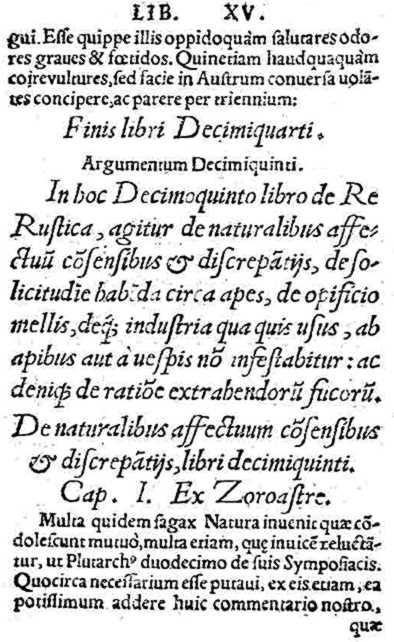 LIB. XV.
gui. Esse quippe illis oppidoquàm salutares odo-
res graues & fœtidos. Quinetiam haudquaquàm
coire vultures, sed facie in Austrum conuersa uolã-
tes concipere, ac parere per triennium:
Finis libri Decimiquarti.
Argumentum Decimiquinti.
In hoc Decimoquinto libro de Re
Rustica, agitur de naturalibus affe-
ctuũ cõsensibus & discrepãtijs, de so-
licitudĩe habẽda circa apes, de opificio
mellis, deq́; industria qua quis usus, ab
apibus aut à uespis nõ infestabitur: ac
deniq; de ratiõe extrahendorũ fucorũ.
De naturalibus affectuum cõsensibus
& discrepãtijs, libri decimiquinti.
Cap. I. Ex Zoroastre.
Multa quidem sagax Natura inuenit quæ cõ-
dolescunt mutuò, multa etiam, quę inuicẽ reluctã-
tur, ut Plutarchꝰ duodecimo de suis Symposiacis.
Quocirca necessarium esse putaui, ex eis etiam, ea
potissimum addere huic commentario nostro,
quæ